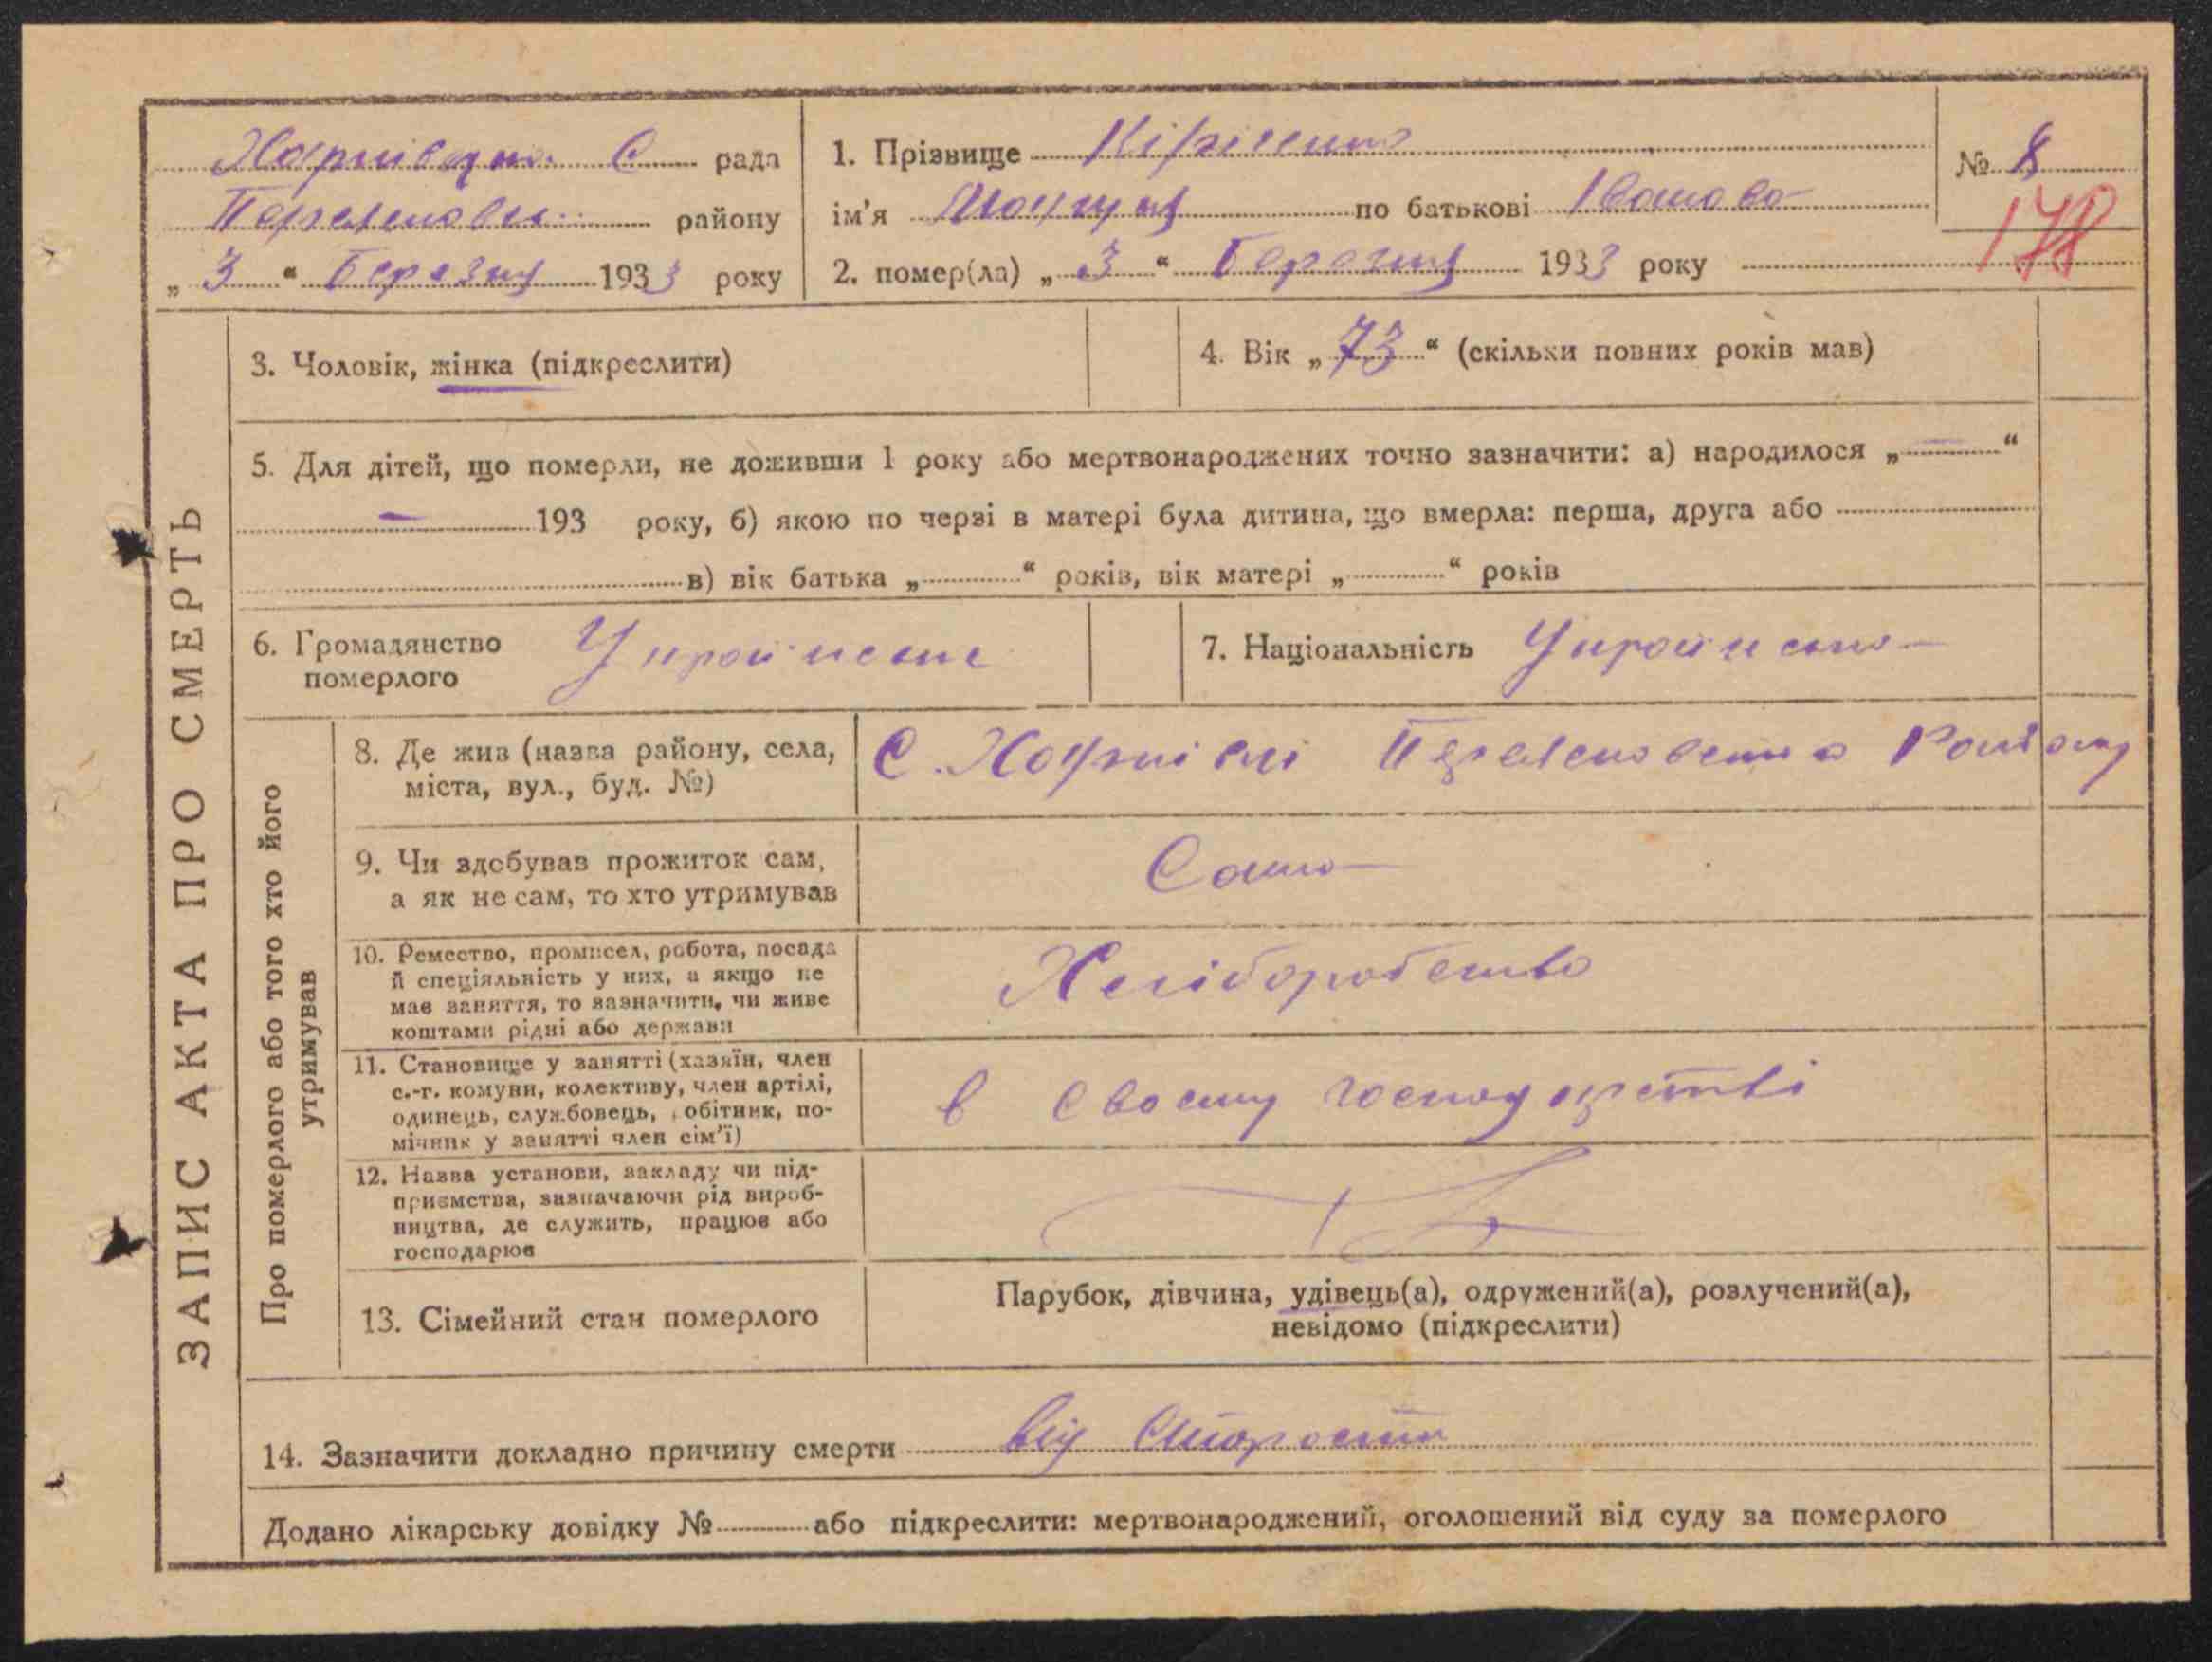 Харківецька С рада
Переяславськ. району
„ 3 “ Березня 1933 року
1. Прізвище Кіріченко
ім'я по батькові Іванова
2. помер(ла) „ 3 “ Березня 1933 року
№ 8
178
ЗАПИС АКТА ПРО СМЕРТЬ
3. Чоловік, жінка (підкреслити)
4. Вік „ 73 “ (скільки повних років мав)
5. Для дітей, що померли, не доживши 1 року або мертвонароджених точно зазначити: а) народилося „ — “
— 193 року, б) якою по черзі в матері була дитина, що вмерла: перша, друга або
в) вік батька „ “ років, вік матері „ “ років
6. Громадянство
померлого
Українське
7. Національність Українська
Про померлого або того хто його
утримував
8. Де жив (назва району, села,
міста, вул., буд. №)
С. Харківці Переяславського Району
9. Чи здобував прожиток сам,
а як не сам, то хто утримував
Сама
10. Ремество, промисел, робота, посада
й спеціяльність у них, а якщо не
має заняття, то зазначити, чи живе
коштами рідні або держави
Хліборобство
11. Становище у занятті (хазяїн, член
с.-г. комуни, колективу, член артілі,
одинець, службовець, робітник, по-
мічник у занятті член сім'ї)
в своєму господарстві
12. Назва установи, закладу чи під-
приємства, зазначаючи рід вироб-
ництва, де служить, працює або
господарює
13. Сімейний стан померлого
Парубок, дівчина, удівець(а), одружений(а), розлучений(а),
невідомо (підкреслити)
14. Зазначити докладно причину смерти від Старости
Додано лікарську довідку № або підкреслити: мертвонароджений, оголошений від суду за померлого